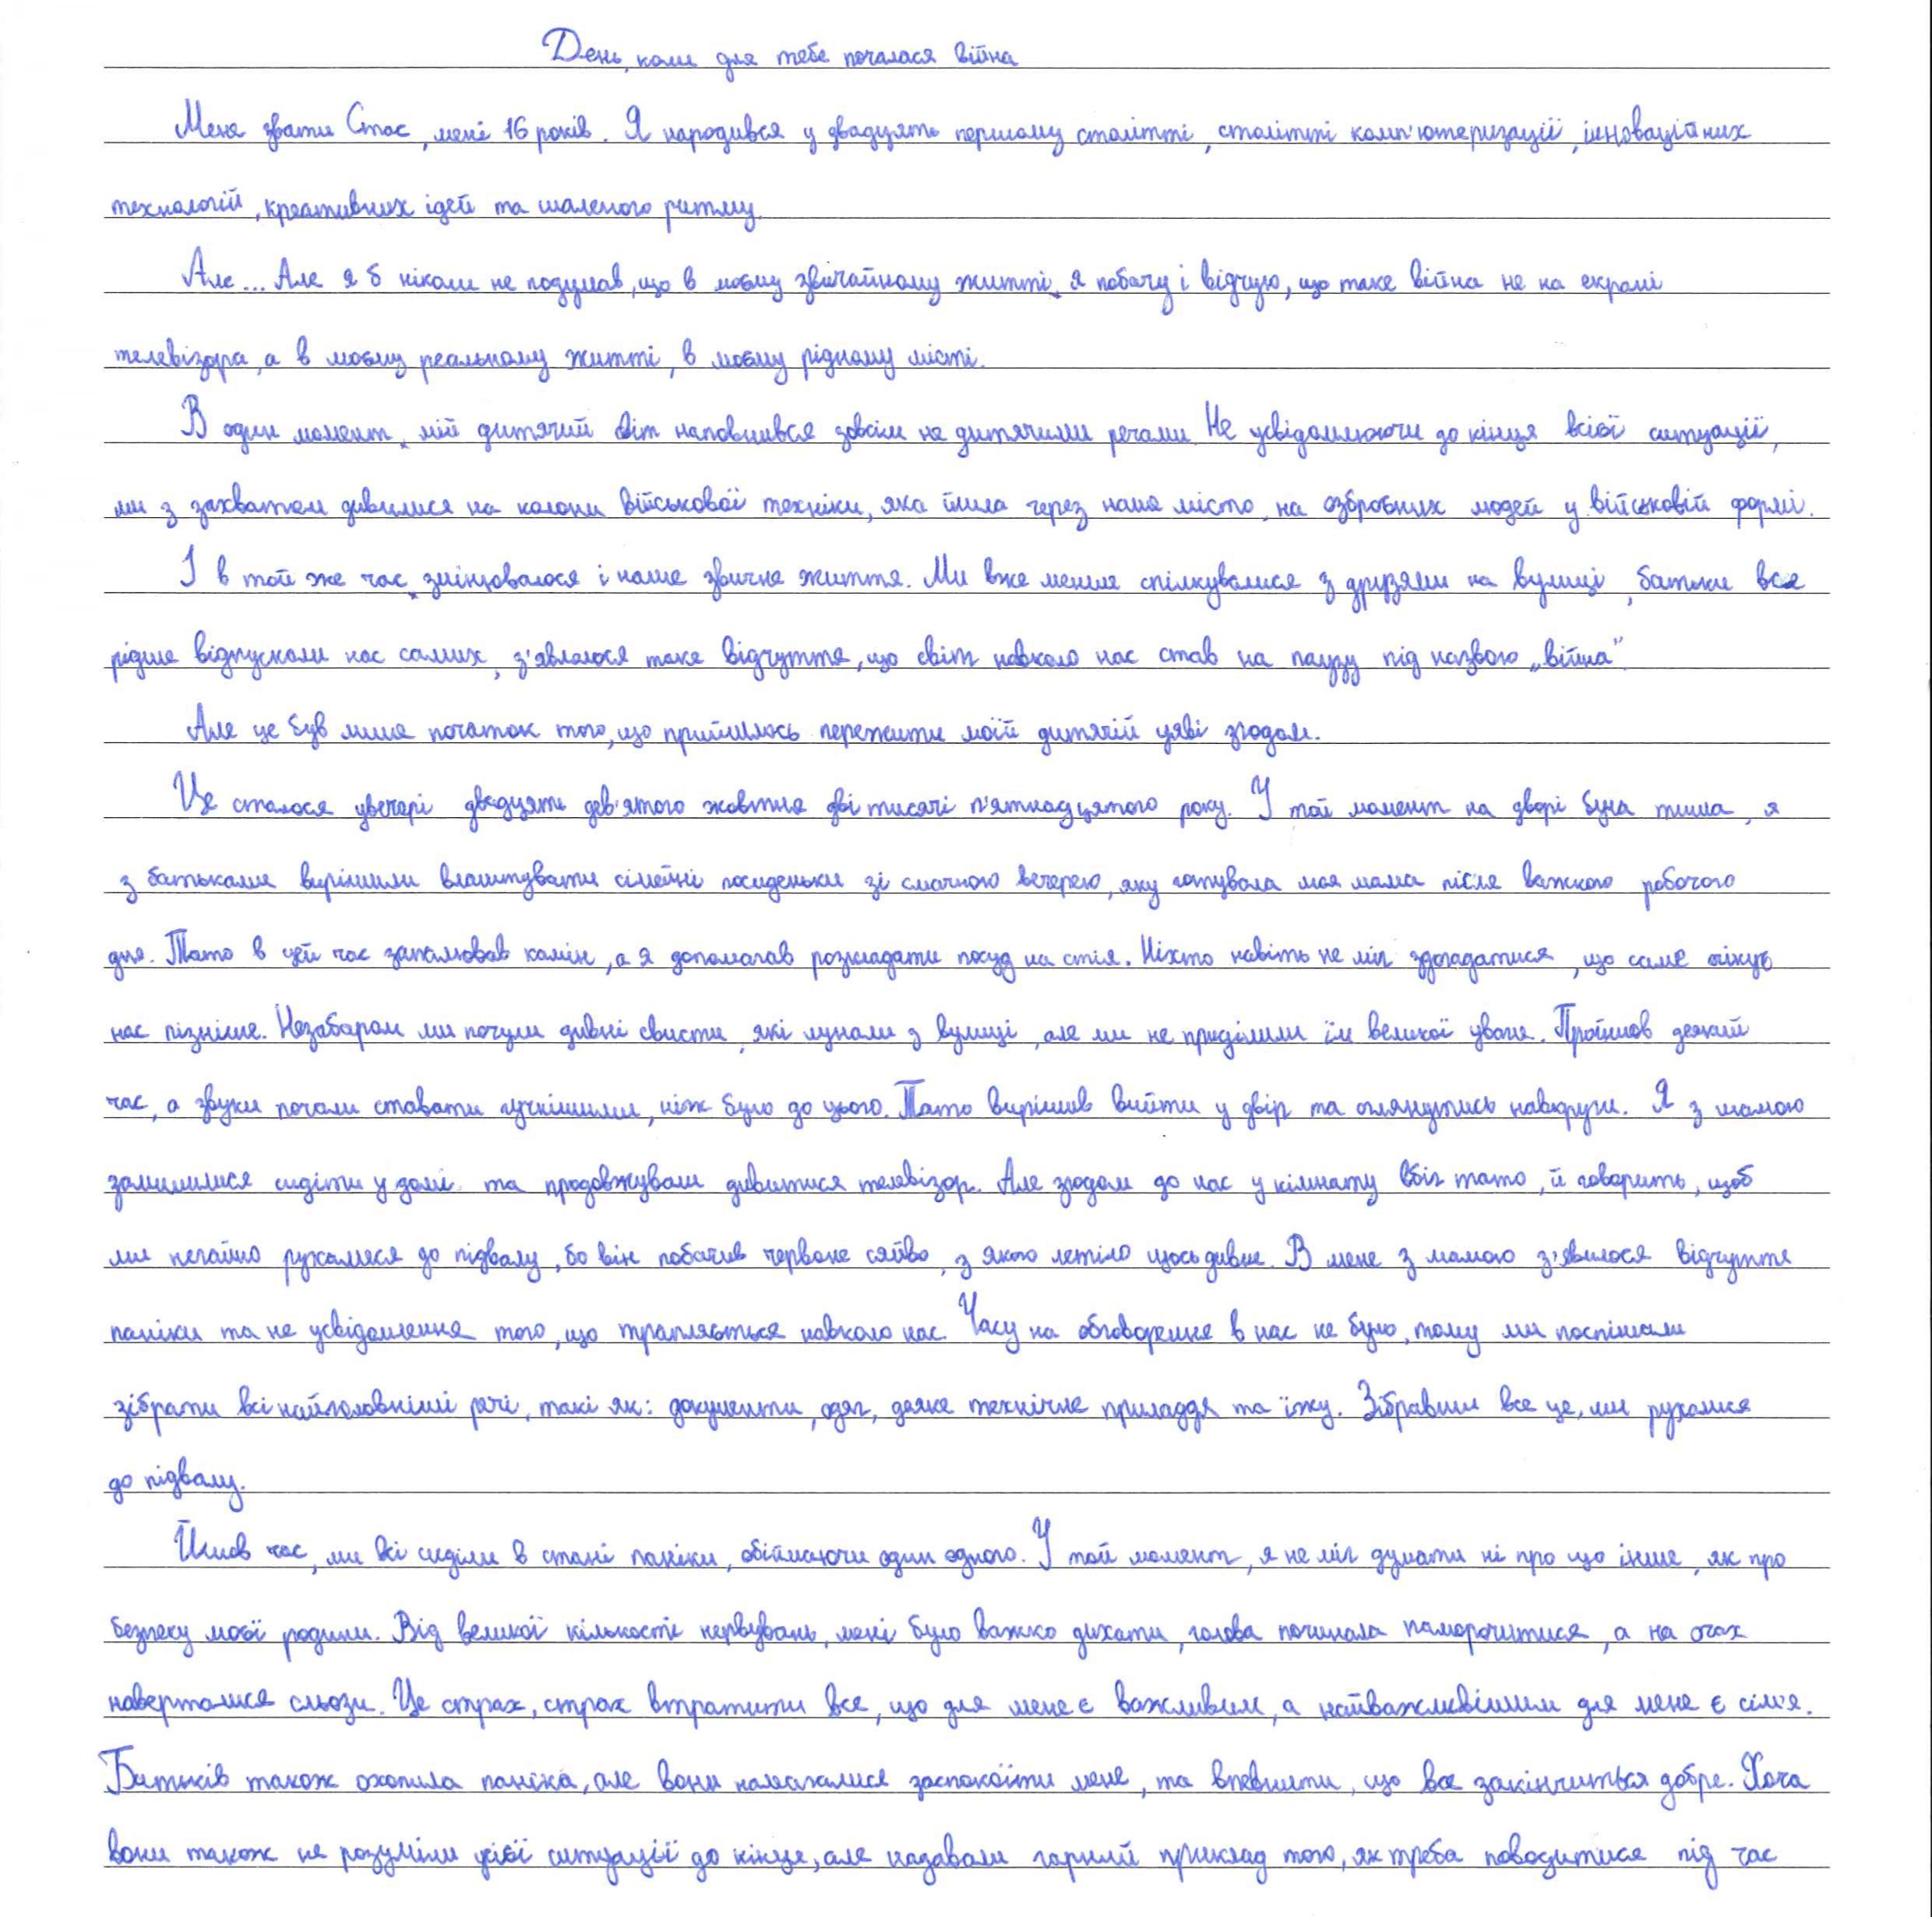 День, коли для тебе почалася війна
Мене звати Стас, мені 16 років. Я народився у двадцять першому столітті, столітті комп'ютеризації, інноваційних
технологій, креативних ідей та шаленого ритму.
Але... Але я б ніколи не подумав, що в моєму звичайному житті я побачу і відчую, що таке війна не на екрані
телевізора, а в моєму реальному житті, в моєму рідному місті.
В один момент, мій дитячий світ наповнився зовсім не дитячими речами. Не усвідомлюючи до кінця всієї ситуації,
ми з захватом дивилися на колони військової техніки, яка йшла через наше місто, на озброєних людей у військовій формі.
І в той же час змінювалося і наше звичне життя. Ми вже менше спілкувалися з друзями на вулиці, батьки все
рідше відпускали нас самих, з'явлалося таке відчуття, що світ навколо нас став на паузу під назвою „війна"
Але це був лише початок того, що прийшлось пережити моїй дитячій уяві згодом.
Це сталося увечері двадцять дев'ятого жовтня дві тисячі п'ятнадцятого року. У той момент на дворі була тиша, я
з батьками вирішили влаштувати сімейні посиденьки зі смачною вечерею, яку готувала моя мама після важкого робочого
дня. Тато в цей час запалював камін, а я допомагав розкладати посуд на стіл. Ніхто навіть не міг здогадатися, що саме очікує
нас пізніше. Незабаром ми почули дивні свисти, які лунали з вулиці, але ми не приділили їм великої уваги. Пройшов деякий
час, а звуки почали ставати гучнішими, ніж було до цього. Тато вирішив вийти у двір та оглянутись навкруги. Я з мамою
залишилися сидіти у домі та продовжували дивитися телевізор. Але згодом до нас у кімнату вбіг тато, й говорить, щоб
ми негайно рухалися до підвалу, бо він побачив червоне сяйво, з якого летіло щось дивне. В мене з мамою з'явилося відчуття
паніки та не усвідомлення того, що трапляється навколо нас. Часу на обговорення в нас не було, тому ми поспішали
зібрати всі найголовніші речі, такі як: документи, одяг, деяке технічне приладдя та їжу. Зібравши все це, ми рухалися
до підвалу.
Йшов час, ми всі сиділи в стані паніки, обіймаючи один одного. У той момент, я не міг думати ні про що інше, як про
безпеку моєї родини. Від великої кількості нервувань, мені було важко дихати, голова починала паморочитися, а на очах
наверталися сльози. Це страх, страх втратити все, що для мене є важливим, а найважливішим для мене є сім'я.
Батьків також охопила паніка, але вони намагалися заспокоїти мене, та впевнити, що все закінчиться добре. Хоча
вони також не розуміли усієї ситуації до кінця, але надавали гарний приклад того, як треба поводитися під час